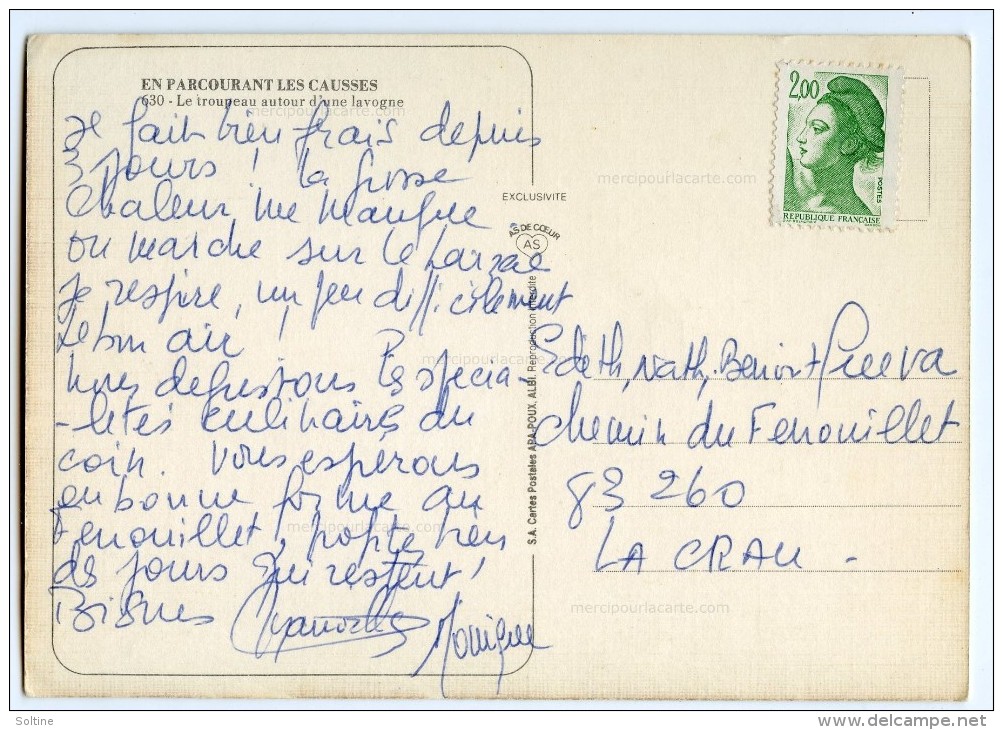 EN PARCOURANT LES CAUSSES
630 - Le troupeau autour d'une lavogne
merci​pourlacarte.com
fait bien frais depuis
3 jours ! La grosse
Chaleur, me manque
on marche sur le Larzac
je respire, un peu difficilement
le bon air !
nous degustons les specia
-lités culinaires du
coin. Vous esperons
en bonne forme au
Fenouillet, profitez bien
des jours qui restent !
Bisous
Monique
EXCLUSIVITE
AS DE CŒUR
AS
S.A. Cartes Postales APA-POUX, ALBI. Reproduction interdite
2,00
POSTES
REPUBLIQUE FRANÇAISE
mercipourlacarte.com
mercipourlacarte.com
Edith, Nath, Benoit
chemin du Fenouillet
83 260
LA CRAU -
mercipourlacarte.com
mercipourlacarte.com
Soltine
delcampe.net